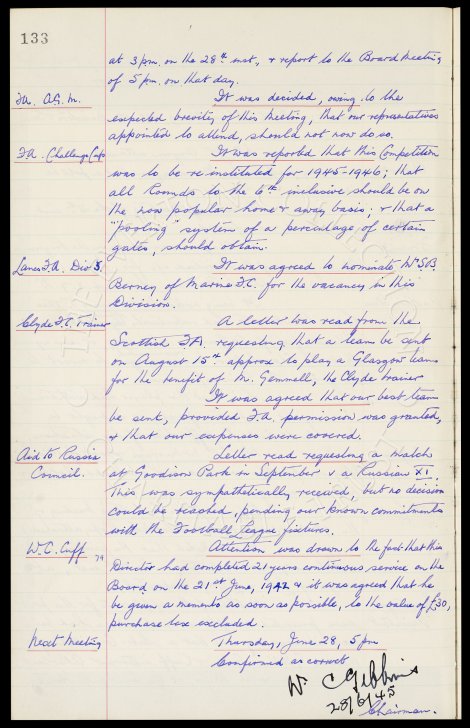 133
at 3 pm. on the 28th inst, & report to the Board Meeting
of 5 pm. on that day.
F.A. A.G.M.
It was decided, owing to the
expected brevity of this Meeting, that our representatives
appointed to attend, should not now do so.
F.A. Challenge Cup
It was reported that this Competition
was to be re-instituted for 1945-1946; that
all Rounds to the 6th inclusive should be on
the now popular home & away basis; & that a
"pooling" system of a percentage of certain
gates, should obtain.
Lancs F.A. Div 3.
It was agreed to nominate Mr S.B.
Berney of Marine F.C. for the vacancy in this
Division.
Clyde F.C. Trainer
A letter was read from the
Scottish F.A. requesting that a team be sent
on August 15th approx to play a Glasgow team
for the benefit of M. Gemmell, the Clyde trainer
It was agreed that our best team
be sent, provided F.A. permission was granted,
& that our expenses were covered.
Aid to Russia
Council.
Letter read requesting a match
at Goodison Park in September v a Russian XI.
This was sympathetically received, but no decision
could be reached, pending our known commitments
with the Football League fixtures.
W.C. Cuff
79
Attention was drawn to the fact that this
Director had completed 21 years continuous service on the
Board on the 21st June, 1942 & it was agreed that he
be given a memento as soon as possible, to the value of £30,
purchase tax excluded.
Next Meeting
Thursday, June 28, 5 pm
Confirmed as correct
W C Gibbins
28/6/45
Chairman.